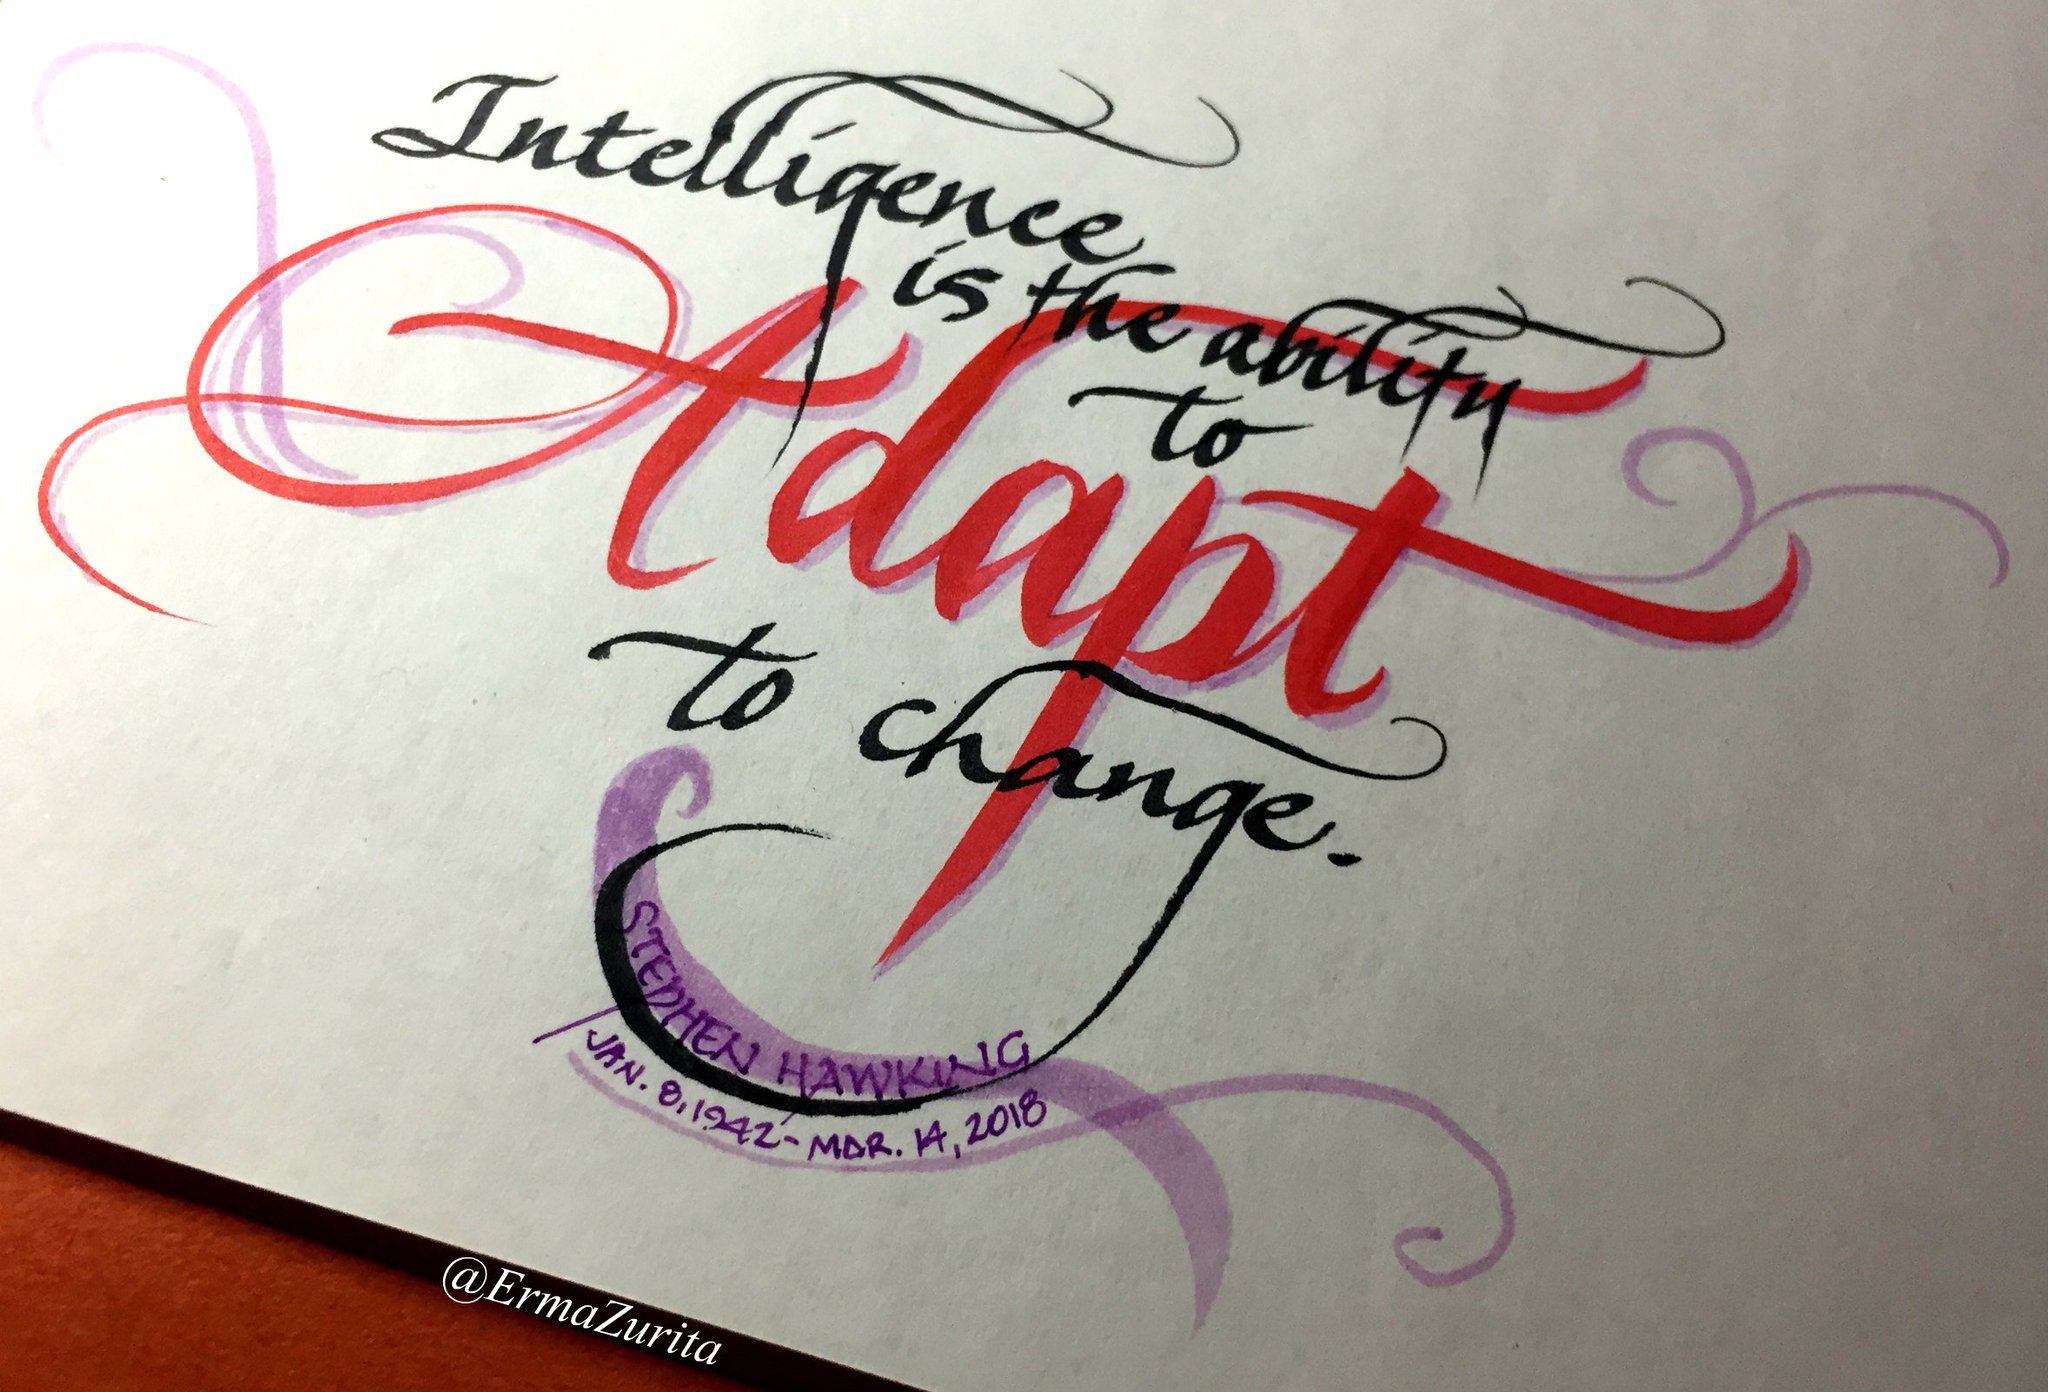 Intelligence
is the ability
to
Adapt
to change.
STEPHEN HAWKING
JAN. 8, 1942 - MAR. 14, 2018
@ErmaZurita